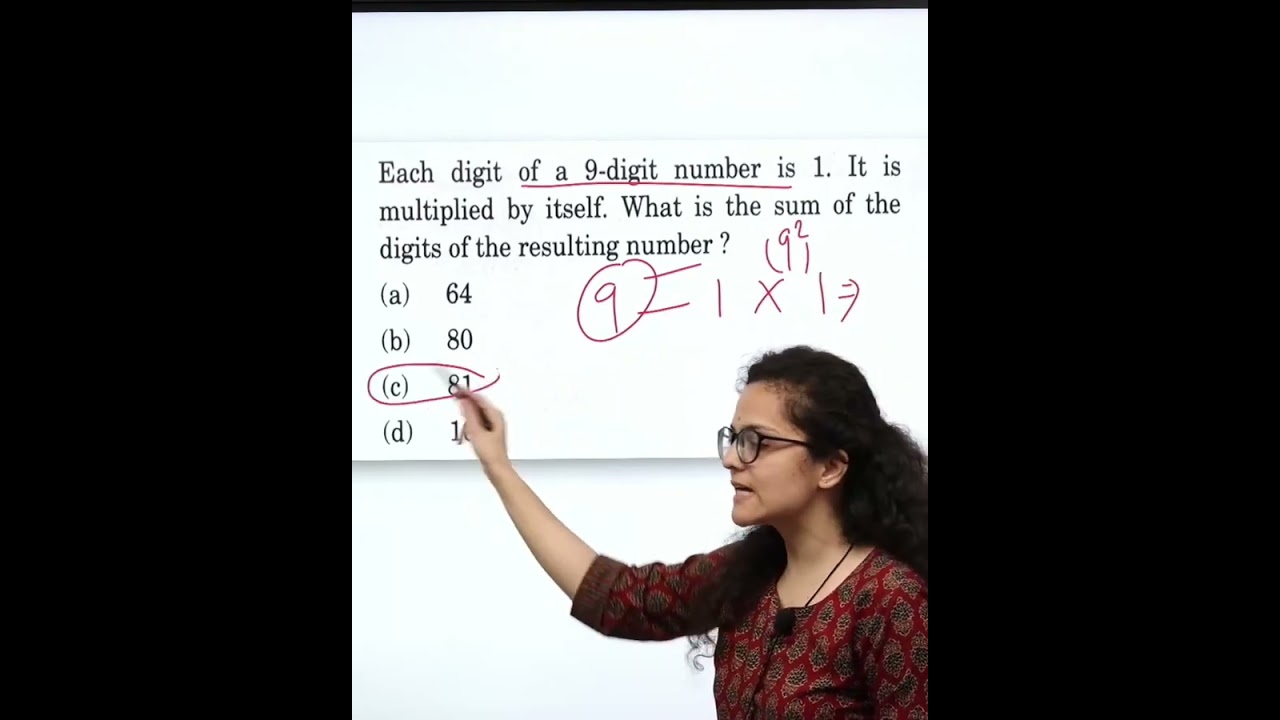 Each digit of a 9-digit number is 1. It is
multiplied by itself. What is the sum of the
digits of the resulting number ?
(9²)
(a) 64
9 = 1 X 1 ⇒
(b) 80
(c) 81
(d)